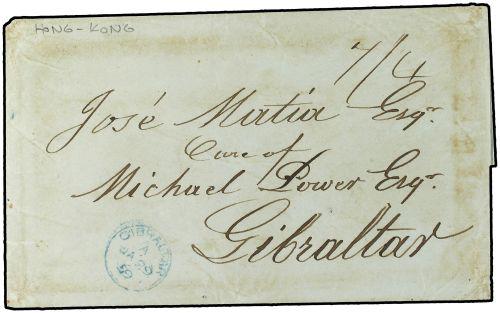 HONG-KONG
7/4
José Matia Esqr.
Care of
Michael Power Esqr.
Gibraltar
GIBRALTAR
A